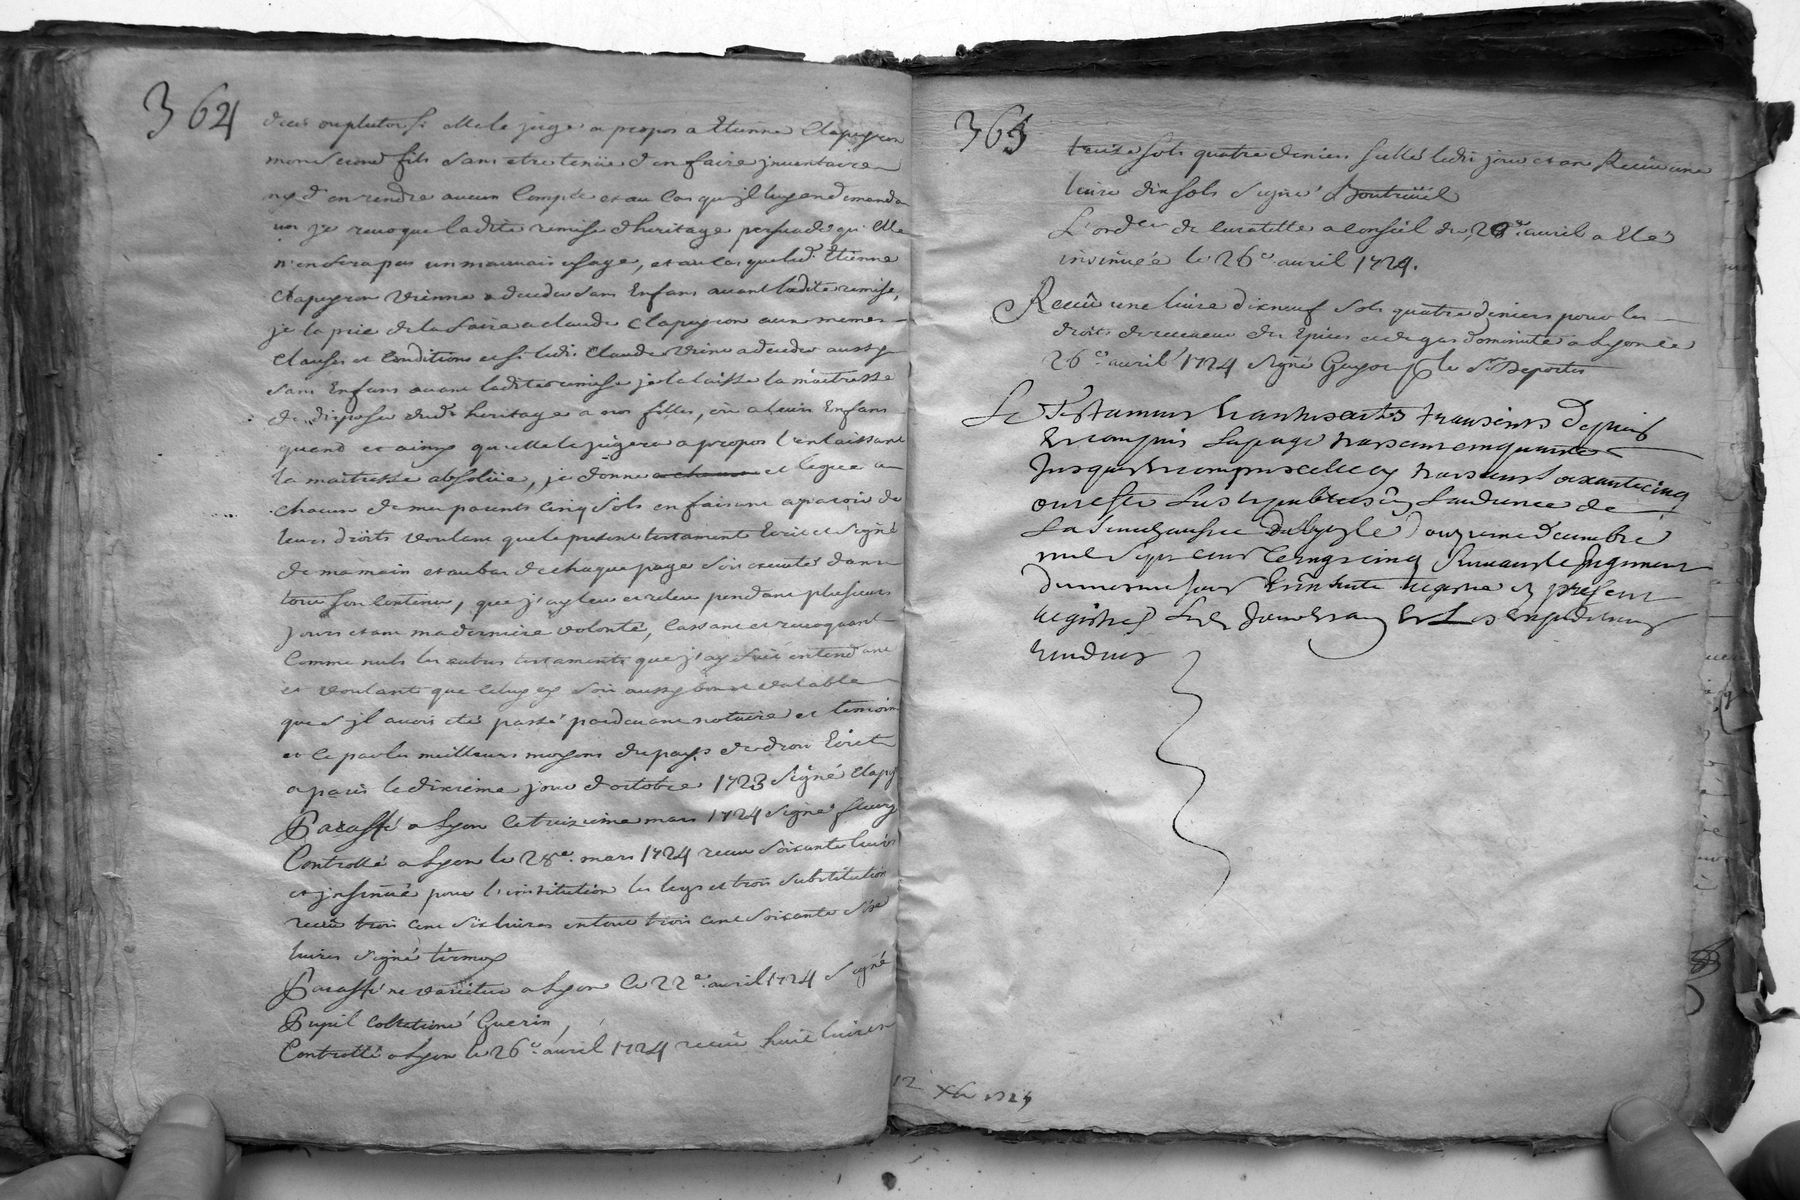 364
deces ou plutot si elle le juge a propos a Etienne Clapeyron
mon second fils sans etre tenüe d'en faire jnventaire
ny d'en rendre aucun compte et au cas qu'jl luy en demanda
un je revoque ladite remise d'heritage persuadé qu'Elle
n'en sera pas un mauvais usage, et au cas que led. Etienne
Clapeyron vienne a deceder sans Enfans avant ladite remise,
je la prie de la faire a claude Clapeyron aux memes
clauses et conditions et si ledit Claude vient a deceder aussy
sans Enfans avant ladite remise je la laisse la maitresse
de disposer dud. heritage a nos filles, ou a leurs Enfans
quand et ainsy qu'elle le jugera a propos l'en laissant
la maitresse absolüe, je donne a chacun et legue a
chacun de mes parents cinq sols en faisant apparoir de
leurs droits voulant que le present testament Ecrit et signé
de ma main et au bas de chaque page soit executé dans
tout son contenu, que j'ay leu et releu pendant plusieurs
jours etant ma derniere volonté, cassant et revoquant
comme nuls les autres testaments que j'ay fait entendant
et voulant que celuy cy soit aussy bon et valable
que s'jl avoit eté passé pardevant notaire et temoins
et ce par les meilleurs moyens du pays de droit Ecrit
a paris le dixieme jour d'octobre 1723 signé Clapey
Paraffé a Lyon le treizieme mars 1724 signé fleury
Controllé a Lyon le 28e. mars 1724 receu soixante livres
et jnsinué pour l'institution les legs et trois substitutions
receu trois cent six livres en tout trois cent soixante six
livres signé
Paraffé ne varietur a Lyon le 22e. avril 1724 signé
Pupil collationé Guerin,
Controllé a Lyon le 26e. avril 1724 receu huit livres
365
treize sols quatre deniers scellé ledit jour et an Receu une
livre dix sols signé
L'ordce de curatelle a conseil du 20e. avril a Eté
insinuée le 26e. avril 1724.
Receu une livre dixneuf sols quatre deniers pour les
droits de receveur des Epices et de gardeminutte a Lyon le
26e. avril 1724 signé Guyon le Sr Desportes
Le Testament Et autres actes transcrits Depuis
Et compris La page trois cent cinquante
Jusques Et compris celle cy trois cent soixante cinq
ont esté Lus Et publiés en L'audience de
La Senechaussée De Lyon le Douzieme Decembre
mil Sept cens vingt cinq Suivant le Jugement
Du mesme jour Et en suite registré es present
registres
rendus
12 Xbre 1725